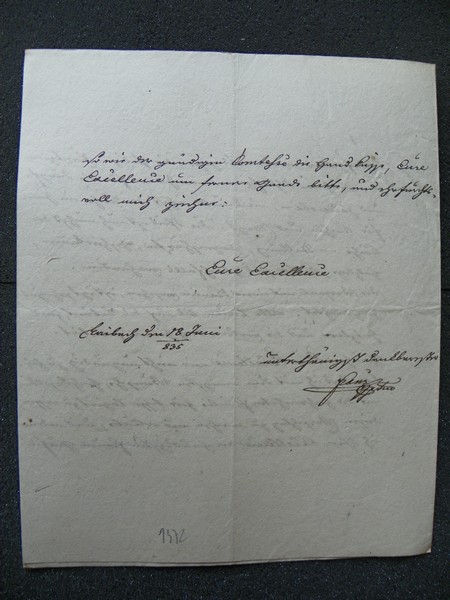 so wie der gnädigen Comtesse die Hand küsse, Eure
Excellence um fernere Gnade bitte, und ehrfurchts-
voll mich zeichne:
Eure Excellence
Laibach den 18 Juni
835
unterthänigst dankbarster
1372